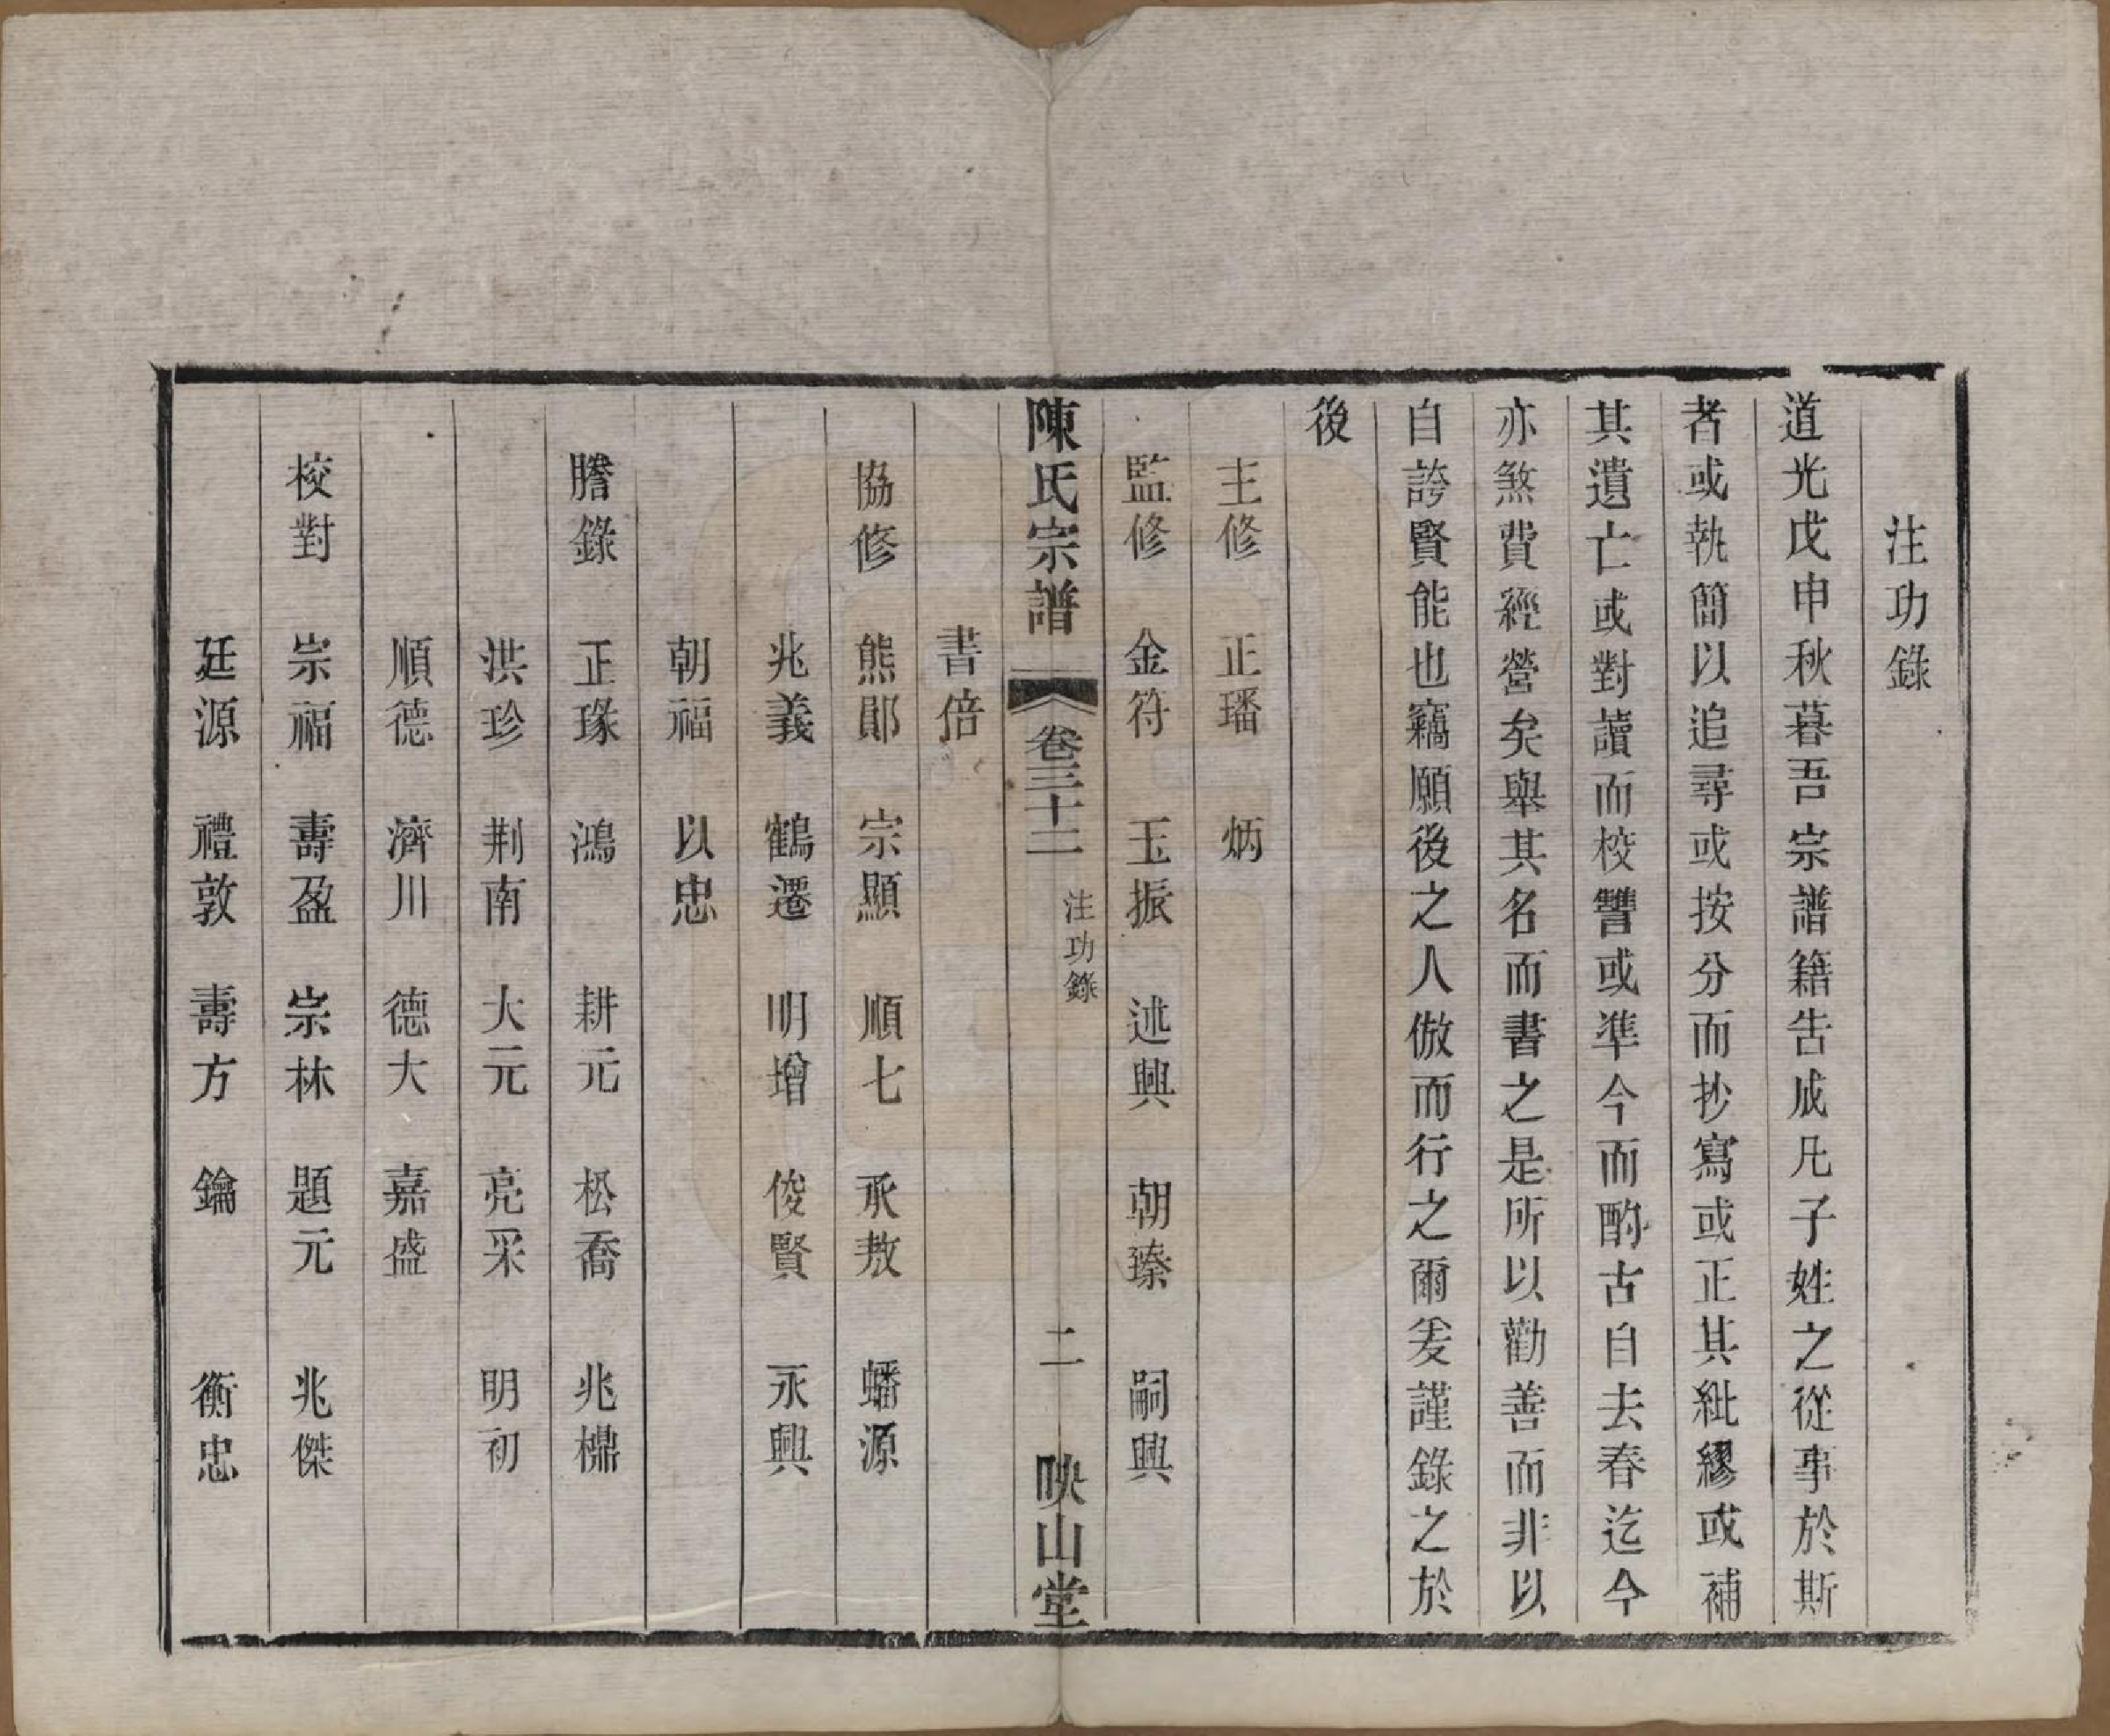 注功錄
道光戊申秋暮吾宗譜籍告成凡子姓之從事於斯
者或執簡以追尋或按分而抄寫或正其紕繆或補
其遺亡或對讀而校讐或準今而酌古自去春迄今
亦煞費經營矣舉其名而書之是所以勸善而非以
自誇賢能也竊願後之人倣而行之爾爰謹錄之於
後
主修 正璠 炳
監修 金符 玉振 述興 朝瑧 嗣興
陳氏宗譜 卷三十二 注功錄 二 映山堂
書倍
協修 熊鄖 宗顯 順七 承敖 蟠源
兆義 鶴遷 明增 俊賢 永興
朝福 以忠
謄錄 正瑑 鴻 耕元 松喬 兆櫆
洪珍 荆南 大元 亮采 明初
順德 濟川 德大 嘉盛
校對 崇福 壽盈 宗林 題元 兆傑
廷源 禮敦 壽方 鑰 衡忠